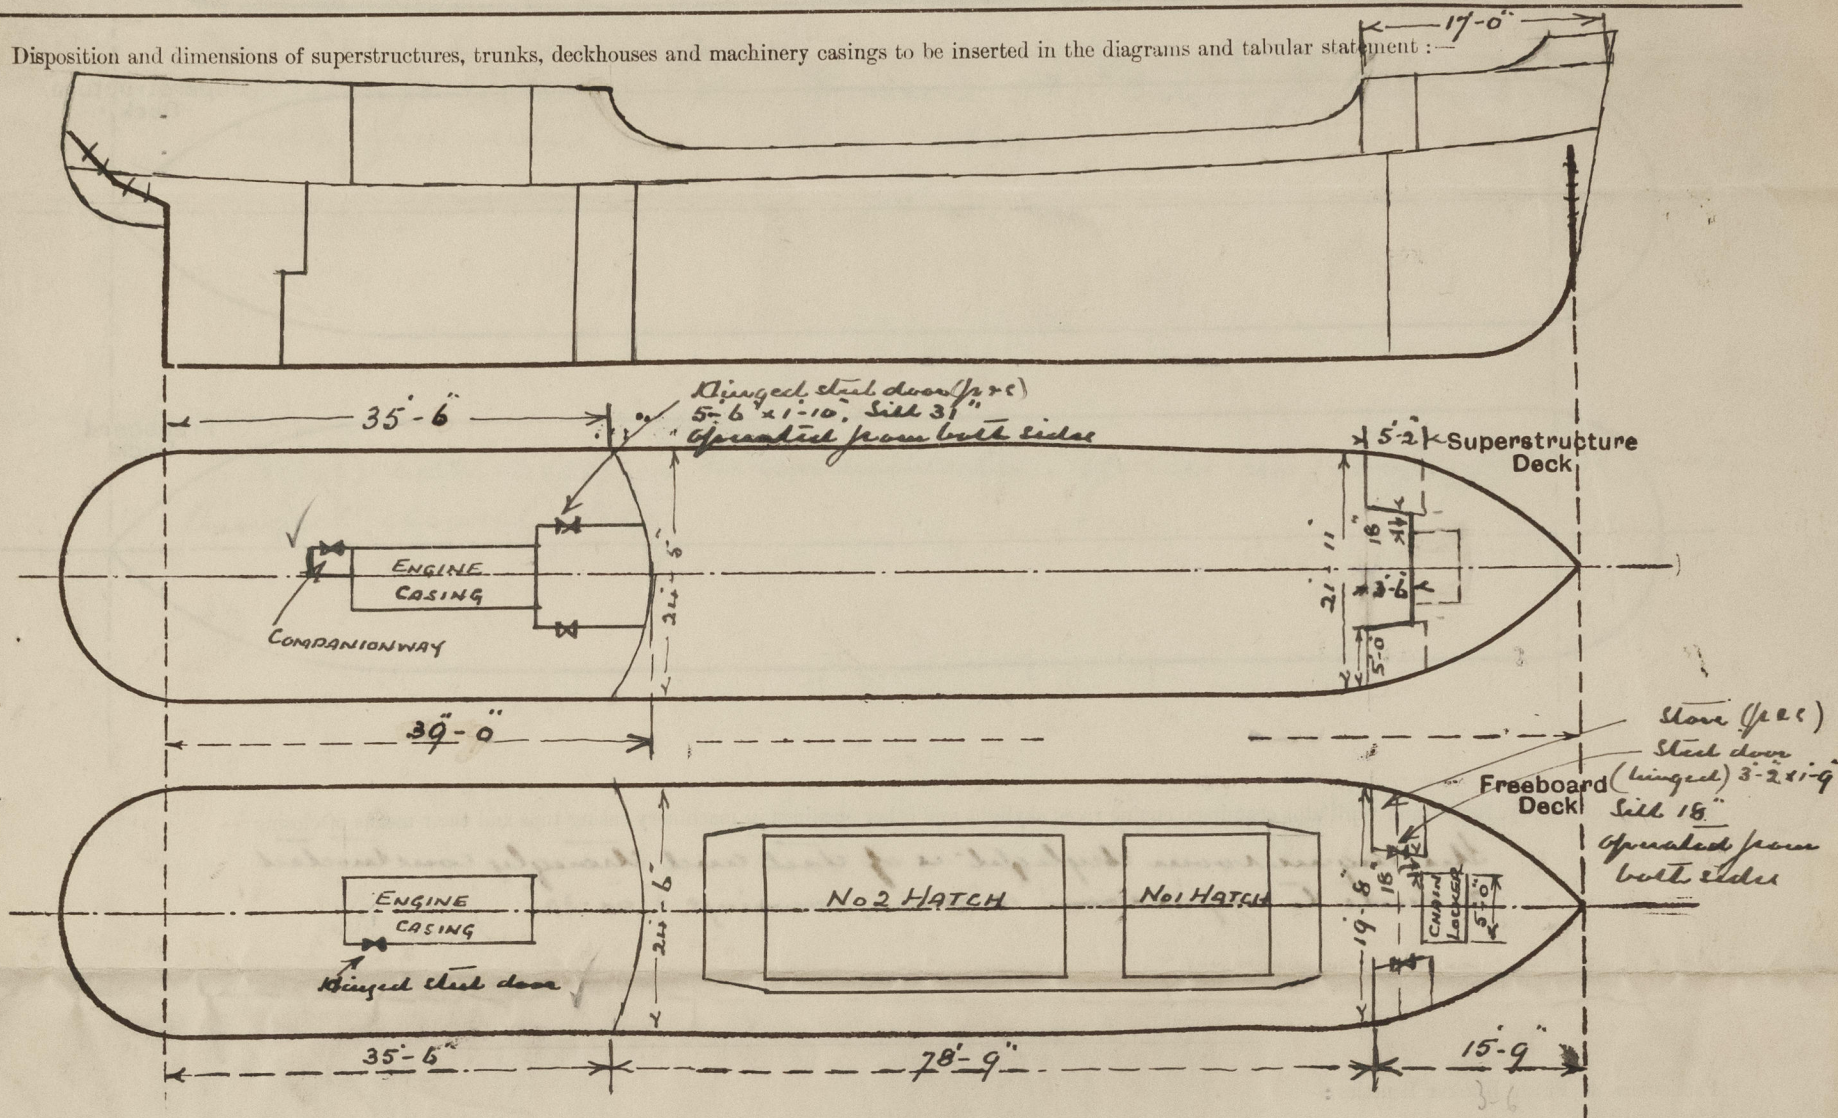 17'-0"
Disposition and dimensions of superstructures, trunks, deckhouses and machinery casings to be inserted in the diagrams and tabular statement :—
35'-6"
Hinged steel door (p & s)
5'-6" x 1'-10", Sill 31"
operated from both sides
5'-2"
Superstructure
Deck
ENGINE
CASING
COMPANIONWAY
24'-5"
21'-11"
18"
3'-6"
5'-0"
39'-0"
Store (p & s)
Steel door
(hinged) 3'-2" x 1'-9"
Sill 18"
operated from
both sides
Freeboard
Deck
ENGINE
CASING
Hinged steel door
24'-6"
No 2 HATCH
No 1 HATCH
19'-8"
18"
CHAIN
LOCKER
5'-0"
35'-6"
78'-9"
15'-9"
3-6